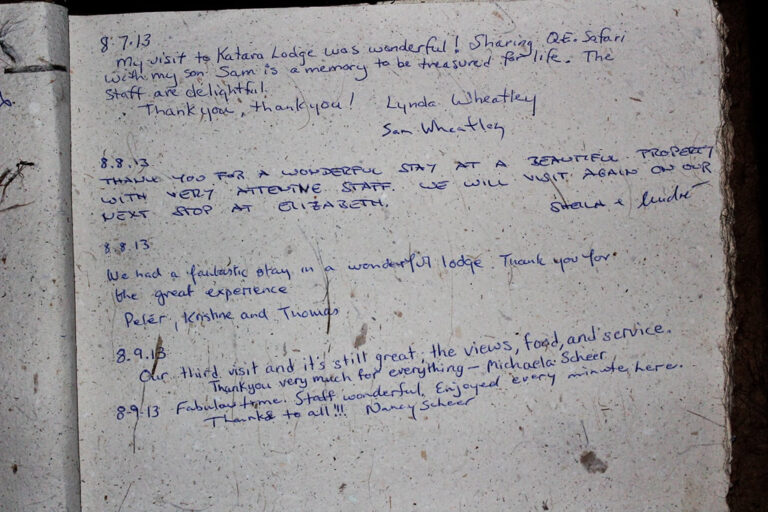 8.7.13
My visit to Katara Lodge was wonderful! Sharing Q.E. Safari
with my son Sam is a memory to be treasured for life. The
staff are delightful.
Thank you, thank you! Lynda Wheatley
Sam Wheatley
8.8.13
THANK YOU FOR A WONDERFUL STAY AT A BEAUTIFUL PROPERTY
WITH VERY ATTENTIVE STAFF. WE WILL VISIT AGAIN ON OUR
NEXT STOP AT ELIZABETH.
SHEILA & André
8.8.13
We had a fantastic stay in a wonderful lodge. Thank you for
the great experience
Peter, Kristine and Thomas
8.9.13
Our third visit and it's still great, the views, food, and service.
Thankyou very much for everything – Michaela Scheer
8.9.13 Fabulous time. Staff wonderful. Enjoyed every minute here.
Thanks to all!!! Nancy Scheer